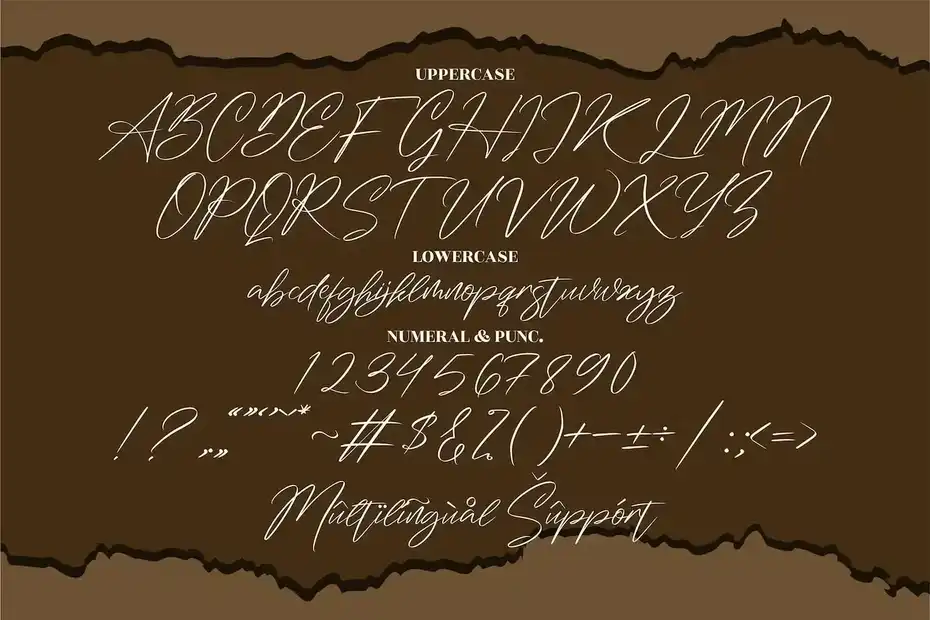 UPPERCASE
ABCDEFGHIJKLMN
OPQRSTUVWXYZ
LOWERCASE
abcdefghijklmnopqrstuvwxyz
NUMERAL & PUNC.
1234567890
!?,„“”‘’~*~#$&%()+−±÷/:;<=>
Mûltïlîngùål Šûppórt